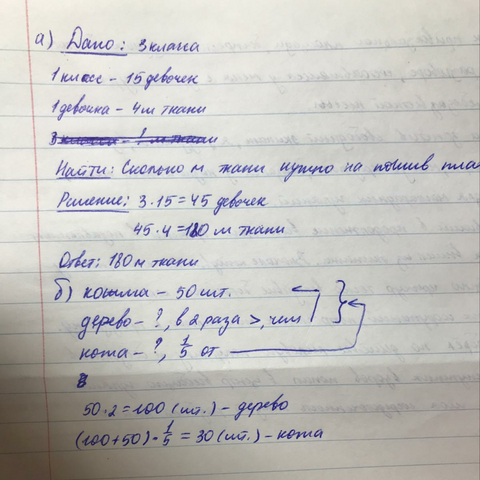 а) Дано: 3 класса
1 класс - 15 девочек
1 девочка - 4 м ткани
Найти: Сколько м ткани нужно на пошив пла
Решение: 3·15=45 девочек
45·4=180 м ткани
Ответ: 180 м ткани
б) кошма - 50 шт.
дерево - ?, в 2 раза >, чем
кожа - ?, 1/5 от
50·2=100 (шт.) - дерево
(100+50)·1/5=30 (шт.) - кожа